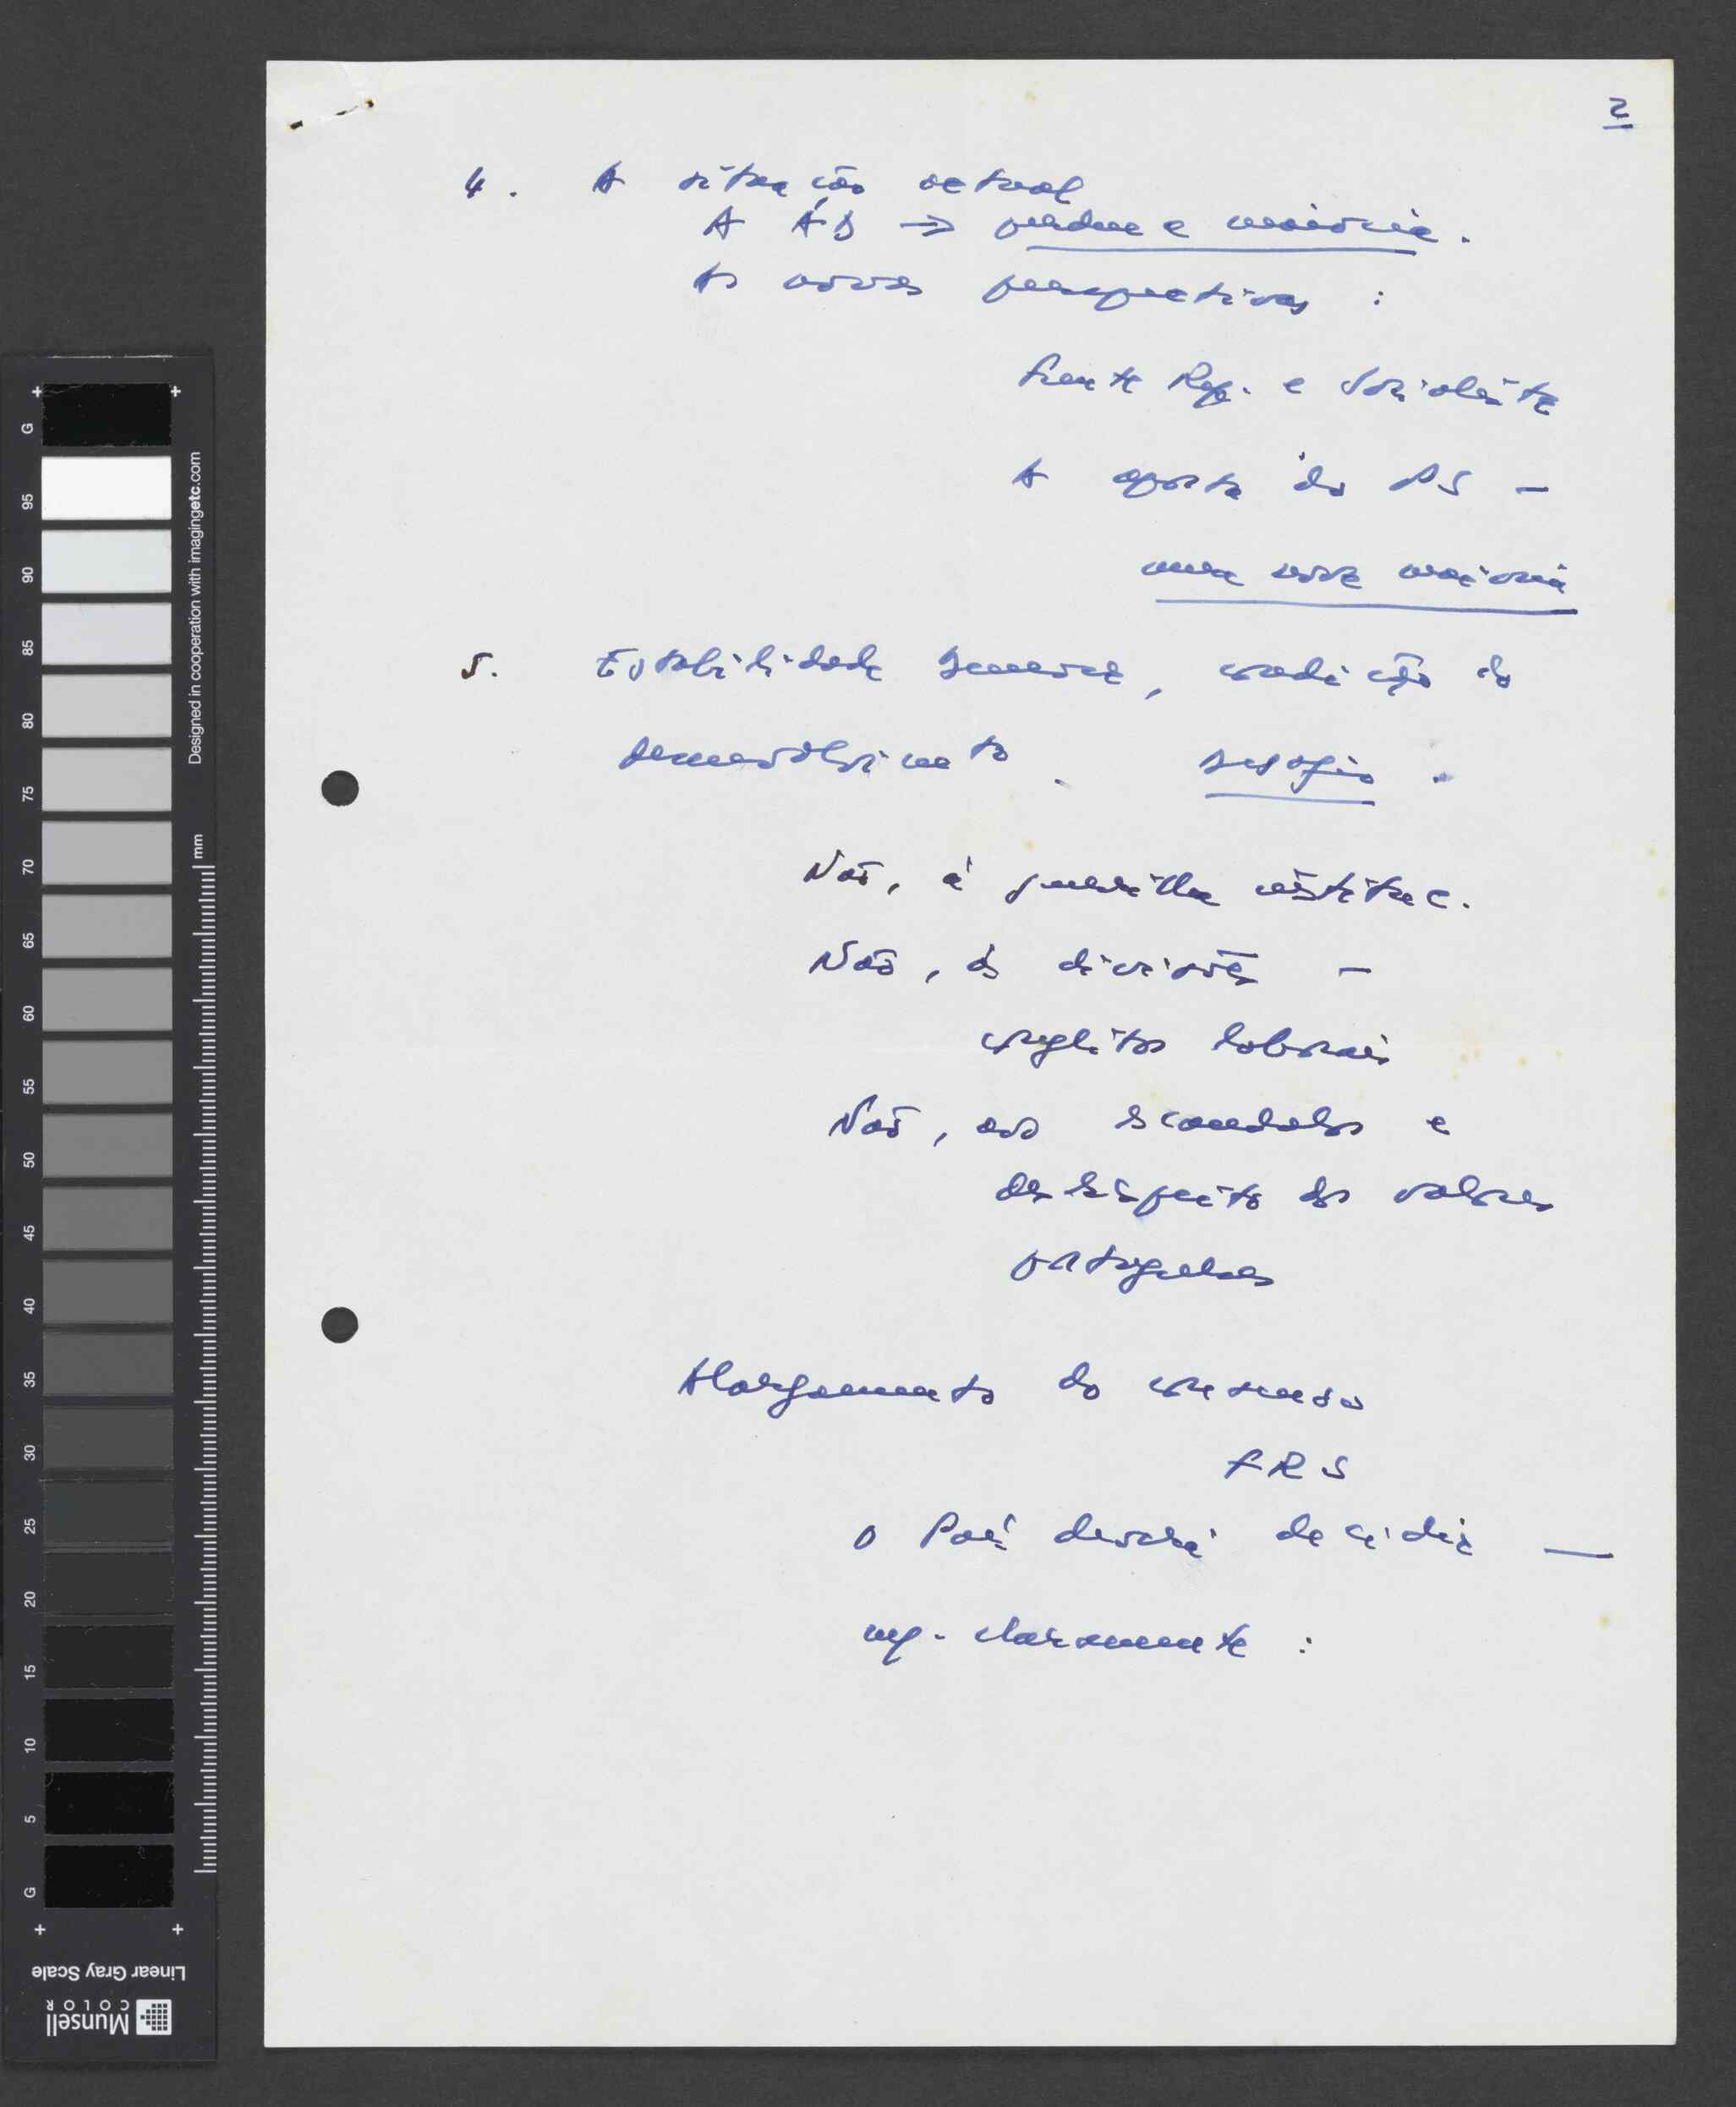 2
4. A situação actual
A AD → perdeu a maioria.
As novas perspectivas :
Frente Rep. e Socialista
A aposta do PS -
uma nova maioria
5. Estabilidade , condição do
desenvolvimento. desafio.
Não, à guerrilha instituc.
Não, às divisões -
conflitos laborais
Não, aos escandalos e
desrespeito dos valores
portugueses
Alargamento do consenso
FRS
O País deverá decidir —
mp. claramente :
G
95
90
85
80
75
70
65
60
55
50
45
40
35
30
25
20
15
10
5
G
Designed in cooperation with imagingetc.com
mm
Linear Gray Scale
Munsell
COLOR